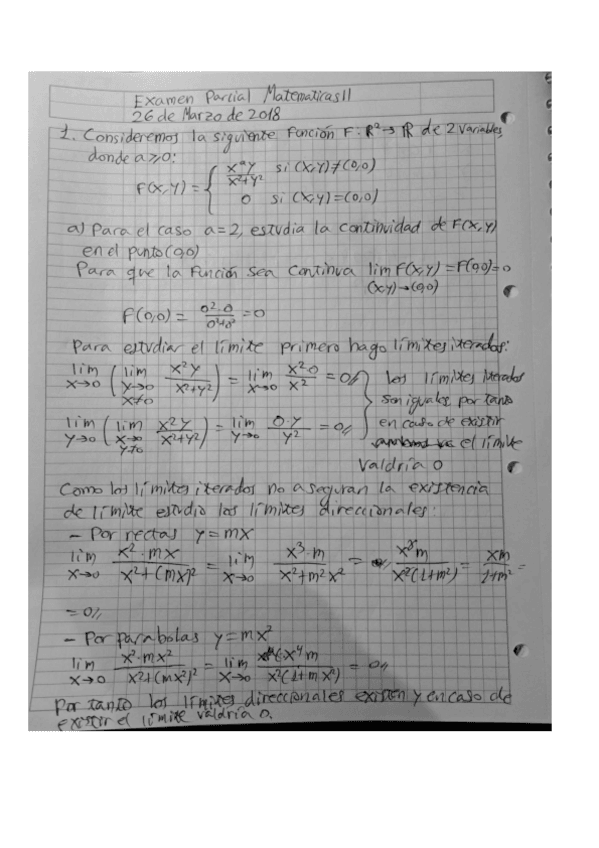 Examen Parcial Matematicas II
26 de Marzo de 2018
1. Consideremos la siguiente Función F: ℝ²→ℝ de 2 variables,
donde a≥0:
F(x,y) = { x^a y / x²+y²   si (x,y)≠(0,0)
0   si (x,y)=(0,0)
a) Para el caso a=2, estudia la continuidad de F(x,y)
en el punto (0,0)
Para que la Función sea continua lim F(x,y) = F(0,0) = 0
(x,y)→(0,0)
F(0,0) = 0²·0 / 0²+0² = 0
Para estudiar el límite primero hago límites iterados:
lim x→0 ( lim y→0 x≠0 x²y / x²+y² ) = lim x→0 x²·0 / x² = 0//
lim y→0 ( lim x→0 y≠0 x²y / x²+y² ) = lim y→0 0·y / y² = 0//
los límites iterados
son iguales, por tanto
en caso de existir
el límite
valdría 0
Como los límites iterados no aseguran la existencia
de límite estudio los límites direccionales:
- Por rectas y=mx
lim x→0 x²·mx / x²+(mx)² = lim x→0 x³·m / x²+m²x² = x³m / x²(1+m²) = xm / 1+m² =
= 0//
- Por parabolas y=mx²
lim x→0 x²·mx² / x²+(mx²)² = lim x→0 x⁴m / x²(1+mx²) = 0//
Por tanto los límites direccionales existen y en caso de
existir el límite valdría 0.